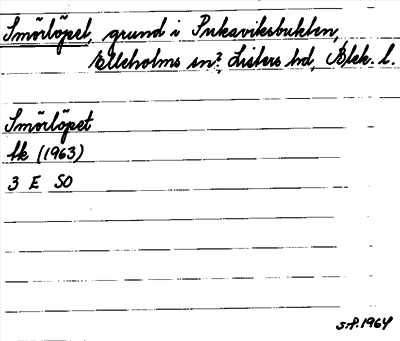 Smörlöpet, grund i Pukaviksbukten,
Elleholms sn?, Listers hd, Blek. l.
Smörlöpet
lk (1963)
3 E SO
S.P. 1964